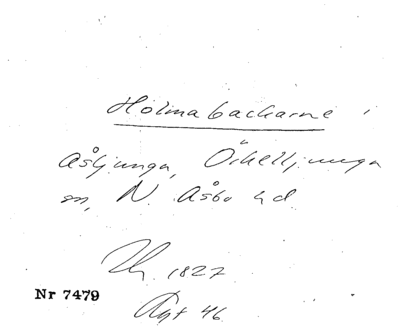 Holmabackarne i
Åsljunga, Örkelljunga
sn, N. Åsbo hd
1827
Nr 7479
46